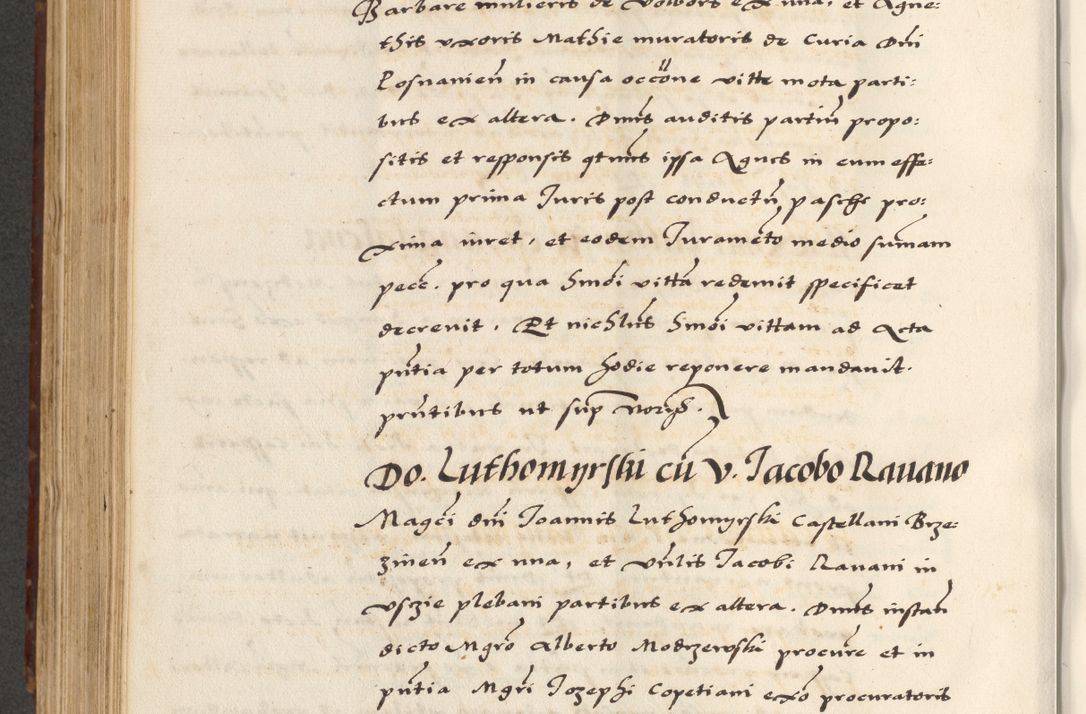 Barbare mulieris de Volbors ex una, et Agne:
this uxoris Mathie muratoris de Curia Dni
Posnanien in causa occõne vitte mota parti:
bus ex altera. Dnus auditis partiu propo:
sitis et responsis qtnus ipsa Agnes in eum effe:
ctum prima Iuris post conductu pasche pro:
xima iuret, et eodem Iurameto medio sumam
pecc. pro qua hmoi vitta redemit specificet
decrevit. Et nichlus hmoi vittam ad Acta
pntia per totum hodie reponere mandavit.
pntibus ut sup Noris.
Do. Luthomyrski cu V. Iacobo Ravano
Magci dni Ioannis Luthomyrski Castellani Brze:
zinen ex una, et Vnlis Iacobi Ravani in
vsczie plebani partibus ex altera. Dnus instan
dicto Mgro Alberto Modrzewski procure et in
pntia Mgri Iozephi Copetiani exo procuratoris